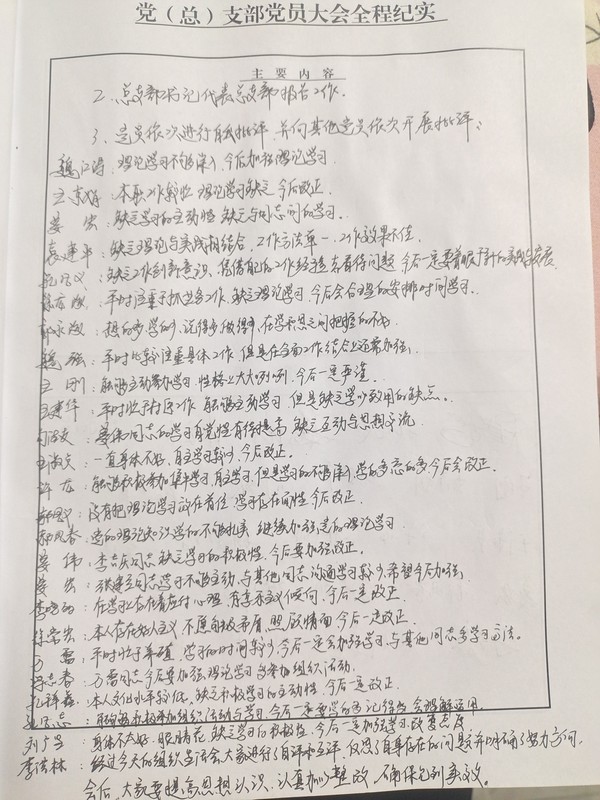 党（总）支部党员大会全程纪实
主要内容
2、总支部书记代表总支部报告工作.
3、党员依次进行自我批评，并向其他党员依次开展批评：
魏江涛：理论学习不够深入，今后加强理论学习.
本职工作较忙 理论学习缺乏 今后改正.
姜宏：缺乏学习的主动性 缺乏与同志间的学习.
袁建平：缺乏理论与实践相结合，工作方法单一，工作效果不佳.
缺乏工作创新意识，凭借的工作经验去看待问题 今后一定要着眼于
平时注重于抓业务工作，缺乏理论学习，今后会合理的安排时间学习.
想的多学的少，说得多做得少，在学和思之间把握的不好
魏强：平时比较注重具体工作，但是在全面工作结合上还需加强.
王刚：能够主动参加学习，性格上大大咧咧，今后一定严谨.
王建华：平时忙于社区工作 能够主动学习，但是缺乏学以致用的缺点.
姜伟同志的学习自觉性有待提高 缺乏互动与思想交流
一直身体不好，自主学习较少，今后改正.
许龙：能够积极参加集中学习，自主学习，但是学习的不够深入，学的多忘的多，今后会改正.
没有把理论学习放在首位，学习存在惰性，今后改正.
党的理论知识学的不够扎实 继续加强党的理论学习.
姜伟：李吉庆同志缺乏学习的积极性，今后要加强改正.
姜宏：同志学习不够主动，与其他同志沟通学习较少，希望今后加强.
在学习上存在着应付心理 有享乐主义倾向，今后一定改正.
本人存在好人主义，不愿触及矛盾，照顾情面 今后一定改正.
平时忙于养殖，学习的时间较少，今后一定会加强学习，与其他同志多学习方法.
李志春：万雷同志今后要加强理论学习 多参加组织活动.
孔祥磊：本人文化水平较低，缺乏积极学习的主动性，今后一定改正.
能够积极参加组织活动与学习，今后一定要学的多记得牢 会理解运用.
身体不太好，眼睛花，缺乏学习的积极性，今后一定加强学习，改变态度
李洪林：经过今天的组织生活会，大家进行了自评和互评，反思了自身存在的问题并明确了努力方向.
会后，大家要提高思想认识，认真加以整改，确保见到实效.